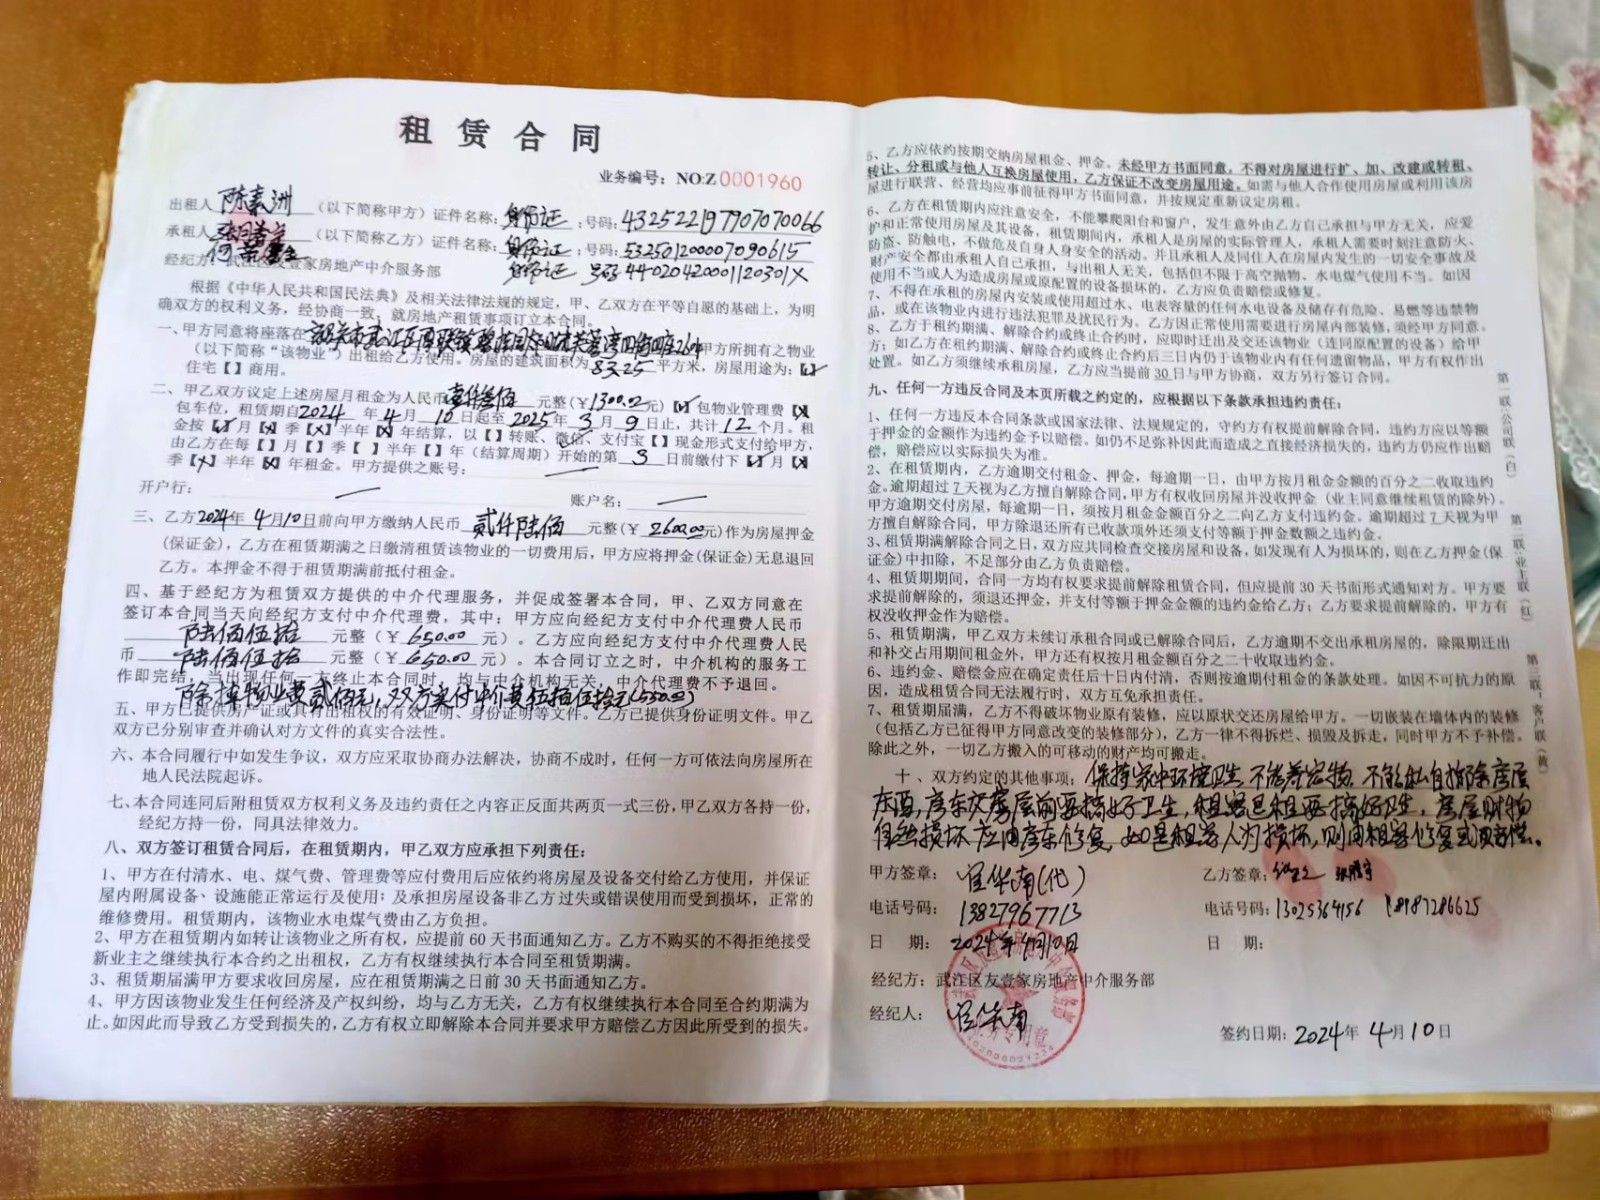 租赁合同
业务编号：NO:Z0001960
出租人 陈素洲 （以下简称甲方）证件名称：身份证 号码：432522197907070066
承租人 （以下简称乙方）证件名称：身份证 号码：532501200007090615
经纪方：武江区友壹家房地产中介服务部 身份证 号码 44020420001120301X
根据《中华人民共和国民法典》及相关法律法规的规定，甲、乙双方在平等自愿的基础上，为明
确双方的权利义务，经协商一致，就房地产租赁事项订立本合同。
一、甲方同意将座落在韶关市武江区西联镇 芙蓉湾四街四座 甲方所拥有之物业
（以下简称“该物业”）出租给乙方使用。房屋的建筑面积为 83.25 平方米，房屋用途为：【√】
住宅【 】商用。
二、甲乙双方议定上述房屋月租金为人民币 壹仟叁佰 元整（￥1300.00元）【√】包物业管理费【×】
包车位，租赁期自2024年4月10日起至2025年3月9日止，共计12个月。租
金按【√】月【×】季【×】半年【×】年结算，以【 】转账、微信、支付宝【 】现金形式支付给甲方，
由乙方在每【 】月【 】季【 】半年【 】年（结算周期）开始的第 3 日前缴付下【√】月【×】
季【×】半年【×】年租金。甲方提供之账号： —
开户行： — 账户名： —
三、乙方2024年4月10日前向甲方缴纳人民币 贰仟陆佰 元整（￥2600.00元）作为房屋押金
（保证金），乙方在租赁期满之日缴清租赁该物业的一切费用后，甲方应将押金（保证金）无息退回
乙方。本押金不得于租赁期满前抵付租金。
四、基于经纪方为租赁双方提供的中介代理服务，并促成签署本合同，甲、乙双方同意在
签订本合同当天向经纪方支付中介代理费，其中：甲方应向经纪方支付中介代理费人民币
陆佰伍拾 元整（￥650.00元）。乙方应向经纪方支付中介代理费人民
币 陆佰伍拾 元整（￥650.00元）。本合同订立之时，中介机构的服务工
作即完结，当出现任何一方终止本合同时，均与中介机构无关，中介代理费不予退回。
除 物业费贰佰元，双方实付中介费伍佰伍拾元（550.00）
五、甲方已提供房产证或具有出租权的有效证明、身份证明等文件。乙方已提供身份证明文件。甲乙
双方已分别审查并确认对方文件的真实合法性。
六、本合同履行中如发生争议，双方应采取协商办法解决，协商不成时，任何一方可依法向房屋所在
地人民法院起诉。
七、本合同连同后附租赁双方权利义务及违约责任之内容正反面共两页一式三份，甲乙双方各持一份，
经纪方持一份，同具法律效力。
八、双方签订租赁合同后，在租赁期内，甲乙双方应承担下列责任：
1、甲方在付清水、电、煤气费、管理费等应付费用后应依约将房屋及设备交付给乙方使用，并保证
屋内附属设备、设施能正常运行及使用；及承担房屋设备非乙方过失或错误使用而受到损坏，正常的
维修费用。租赁期内，该物业水电煤气费由乙方负担。
2、甲方在租赁期内如转让该物业之所有权，应提前60天书面通知乙方。乙方不购买的不得拒绝接受
新业主之继续执行本合约之出租权，乙方有权继续执行本合同至租赁期满。
3、租赁期届满甲方要求收回房屋，应在租赁期满之日前30天书面通知乙方。
4、甲方因该物业发生任何经济及产权纠纷，均与乙方无关，乙方有权继续执行本合同至合约期满为
止。如因此而导致乙方受到损失的，乙方有权立即解除本合同并要求甲方赔偿乙方因此所受到的损失。
5、乙方应依约按期交纳房屋租金、押金。未经甲方书面同意，不得对房屋进行扩、加、改建或转租、
转让、分租或与他人互换房屋使用，乙方保证不改变房屋用途。如需与他人合作使用房屋或利用该房
屋进行联营、经营均应事前征得甲方书面同意，并按规定重新议定房租。
6、乙方在租赁期内应注意安全，不能攀爬阳台和窗户，发生意外由乙方自己承担与甲方无关，应爱
护和正常使用房屋及其设备，租赁期间内，承租人是房屋的实际管理人，承租人需要时刻注意防火、
防盗、防触电，不做危及自身人身安全的活动。并且承租人及同住人在房屋内发生的一切安全事故及
财产安全都由承租人自己承担，与出租人无关，包括但不限于高空抛物、水电煤气使用不当。如因
使用不当或人为造成房屋或原配置的设备损坏的，乙方应负责赔偿或修复。
7、不得在承租的房屋内安装或使用超过水、电表容量的任何水电设备及储存有危险、易燃等违禁物
品，或在该物业内进行违法犯罪及扰民行为。乙方因正常使用需要进行房屋内部装修，须经甲方同意。
8、乙方于租约期满、解除合约或终止合约时，应即时迁出及交还该物业（连同原配置的设备）给甲
方；如乙方在租约期满、解除合约或终止合约后三日内仍于该物业内有任何遗留物品，甲方有权作出
处置。如乙方须继续承租房屋，乙方应当提前30日与甲方协商，双方另行签订合同。
九、任何一方违反合同及本页所载之约定的，应根据以下条款承担违约责任：
1、任何一方违反本合同条款或国家法律、法规规定的，守约方有权提前解除合同，违约方应以等额
于押金的金额作为违约金予以赔偿。如仍不足弥补因此而造成之直接经济损失的，违约方仍应作出赔
偿，赔偿应以实际损失为准。
2、在租赁期内，乙方逾期交付租金、押金，每逾期一日，由甲方按月租金金额的百分之二收取违约
金。逾期超过7天视为乙方擅自解除合同，甲方有权收回房屋并没收押金（业主同意继续租赁的除外）。
甲方逾期交付房屋，每逾期一日，须按月租金金额百分之二向乙方支付违约金。逾期超过7天视为甲
方擅自解除合同，甲方除退还所有已收款项外还须支付等额于押金数额之违约金。
3、租赁期满解除合同之日，双方应共同检查交接房屋和设备，如发现有人为损坏的，则在乙方押金（保
证金）中扣除，不足部分由乙方负责赔偿。
4、租赁期期间，合同一方均有权要求提前解除租赁合同，但应提前30天书面形式通知对方。甲方要
求提前解除的，须退还押金，并支付等额于押金金额的违约金给乙方；乙方要求提前解除的，甲方有
权没收押金作为赔偿。
5、租赁期满，甲乙双方未续订承租合同或已解除合同后，乙方逾期不交出承租房屋的，除限期迁出
和补交占用期间租金外，甲方还有权按月租金额百分之二十收取违约金。
6、违约金、赔偿金应在确定责任后十日内付清，否则按逾期付租金的条款处理。如因不可抗力的原
因，造成租赁合同无法履行时，双方互免承担责任。
7、租赁期届满，乙方不得破坏物业原有装修，应以原状交还房屋给甲方。一切嵌装在墙体内的装修
（包括乙方已征得甲方同意改变的装修部分），乙方一律不得拆烂、损毁及拆走，同时甲方不予补偿。
除此之外，一切乙方搬入的可移动的财产均可搬走。
十、双方约定的其他事项：保持家中环境卫生，不能养宠物，不能私自拆除房屋
东西，房东交房屋前要搞好卫生，租客退租要搞好卫生，房屋财物
自然损坏应由房东修复，如是租客人为损坏，则由租客修复或赔偿。
甲方签章： 华南（代） 乙方签章：
电话号码：13827967713 电话号码：13025364156 18987286625
日 期：2024年4月10日 日 期：
经纪方：武江区友壹家房地产中介服务部
经纪人： 华南
签约日期：2024年4月10日
第一联：公司联（白）
第二联：业主联（红）
第三联：客户联（黄）